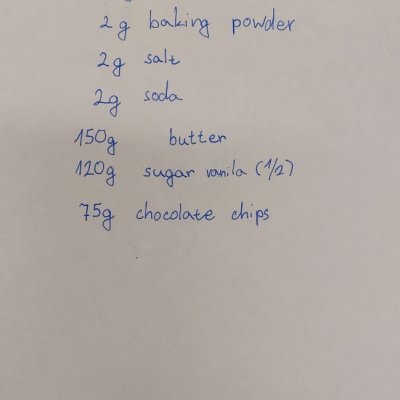 2g baking powder
2g salt
2g soda
150g butter
120g sugar vanila (1/2)
75g chocolate chips